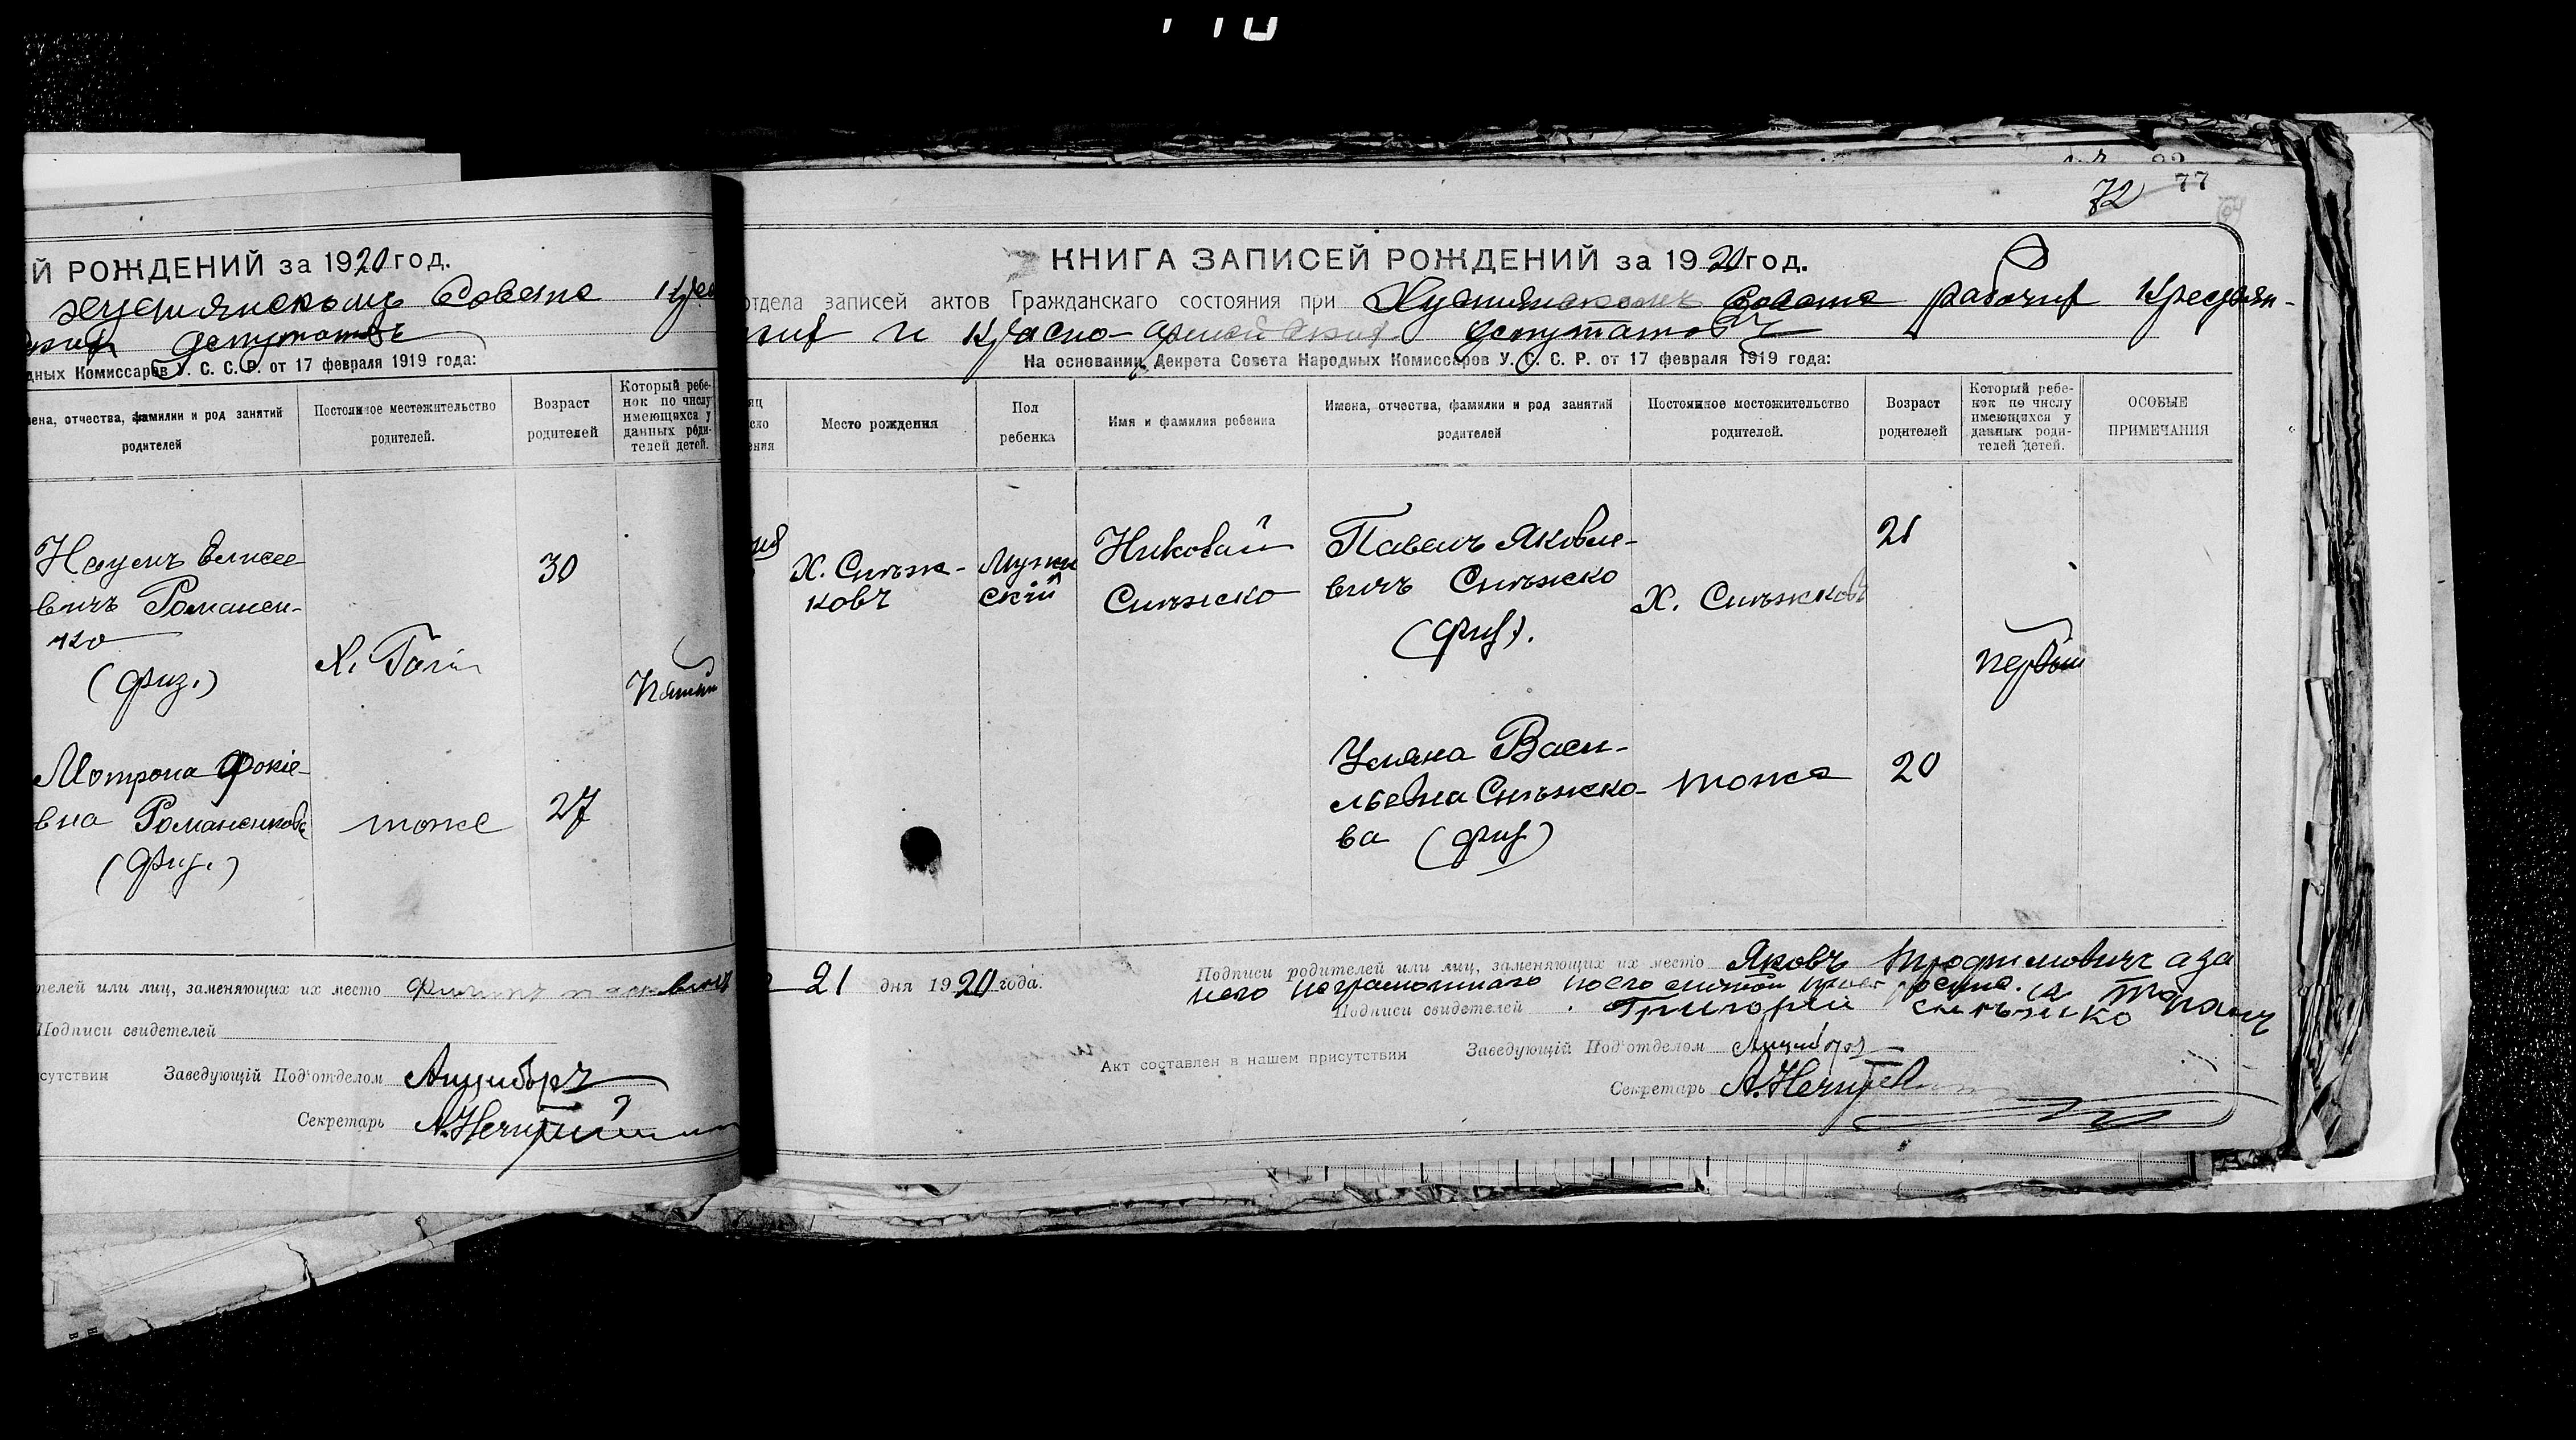 Й РОЖДЕНИЙ за 1920 год.
Совета
депутатовъ
дных Комиссаров У. С. С. Р. от 17 февраля 1919 года:
мена, отчества, фамилии и род занятий родителей
Постоянное местожительство родителей.
Возраст родителей
Который ребе-
нок по числу
имеющихся у
данных роди-
телей детей.
Наумъ Елисее
вичъ Романен-
ко
(физ.)
Х.
30
Мотрона Фокіе-
вна Романенкова
(физ.)
тоже
27
телей или лиц, заменяющих их место
Подписи свидетелей
сутствии Заведующій Под'отделом
Секретарь
72 77
КНИГА ЗАПИСЕЙ РОЖДЕНИЙ за 1920 год.
отдела записей актов Гражданскаго состояния при Совета рабочих Крестьян-
и Красно-армейских депутатовъ
На основании Декрета Совета Народных Комиссаров У. С. С. Р. от 17 февраля 1919 года:
Место рождения
Пол
ребенка
Имя и фамилия ребенка
Имена, отчества, фамилии и род занятий
родителей
Постоянное местожительство
родителей.
Возраст
родителей
Который ребе-
нок по числу
имеющихся у
данных роди-
телей детей.
ОСОБЫЕ
ПРИМЕЧАНИЯ
Х. Снѣж-
ковъ
Мужи
скій
Николай
Снѣжко
Павелъ Яковле-
вичъ Снѣжко
(физ).
Х. Снѣжковъ
21
первый
Уляна Васи-
льевна Снѣжко-
ва (физ)
тоже
20
21 дня 1920 года.
Подписи родителей или лиц, заменяющих их место Яковъ Трофимовичъ а за
него неграмотнаго по его личной
Подписи свидетелей Григорій Снѣжко
Акт составлен в нашем присутствии Заведующій Под'отделом
Секретарь